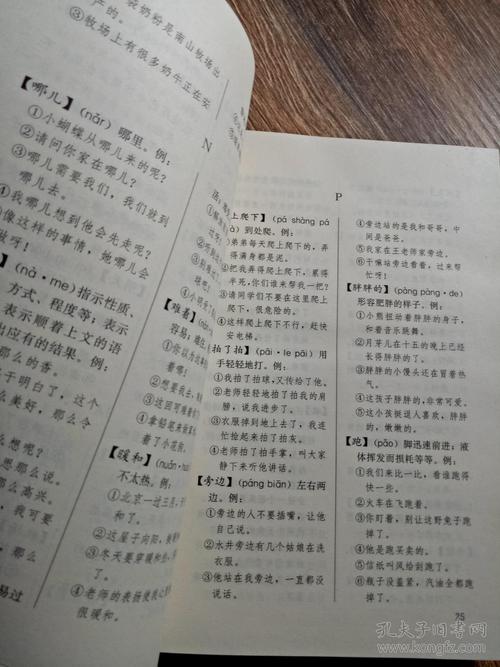 袋奶粉是南山牧场出
产的。
③牧场上有很多奶牛正在安
N
【哪儿】(nǎr)哪里。例：
①小蝴蝶从哪儿来的呢？
②请问你家在哪儿？
③哪儿需要我们，我们就到
哪儿去。
④我哪儿想到他会先走呢？
像这样的事情，她哪儿会
做呀！
(nà·me)指示性质、
方式、程度等；表示
表示顺着上文的语
出应有的结果。例：
那么的香。
于明白了，这个
美好，那么令
么想呢？
那么说。
那么高兴。
，我可要
那么
易过
【难看】
容易；
①你以为这
着看！
②想要我去，
③这回可难着
④拿铅笔来
了小花猫。
【暖和】(nuǎn·
不太热。例：
①北京一过三月，
和了。
②这屋子向阳，
③冬天要穿暖和些，
④老师的表扬使我
很暖和。
P
上爬下】(pá shàng pá
à)到处爬。例：
①弟弟每天爬上爬下的，弄
得满身都是泥。
②把我弄得爬上爬下，累得
半死，你们谁来帮帮我呀！
③请同学们不要在这里爬上
爬下，很危险的。
④这样爬上爬下不行，赶快
安电梯。
拍了拍】(pāi·le pāi)用
手轻轻地打。例：
①我拍了拍球，又传给了他。
②老师轻轻地拍了拍我的肩
膀，说我进步了。
③衣服掉到地上去了，我连
忙捡起来拍了拍灰。
④老师拍了拍手掌，叫大家
静下来听他讲话。
【旁边】(páng biān)左右两
边。例：
①旁边的人不要插嘴，让他
自己说。
②水井旁边有几个姑娘在洗
衣服。
③他站在我旁边，一直都没
说话。
④旁边站的是我和哥哥，中
间是爸爸。
⑤我家在王老师家旁边。
⑥干嘛站旁边看着，过来帮
忙呀！
【胖胖的】(pàng pàng·de)
形容肥胖的样子。例：
①小熊扭动着胖胖的身子，
和着音乐跳舞。
②月芽儿在十五的晚上已经
长得胖胖的了。
③胖胖的小馒头还在冒着热
气。
④这孩子胖胖的，非常可爱。
⑤这小孩挺逗人喜欢，胖胖
的，嫩嫩的。
【跑】(pǎo)脚迅速前进；液
体挥发而损耗等等。例：
①我们来比一比，看谁跑得
快一些。
②火车在飞跑着。
③你盯着，别让这野兔子跑
掉了。
④他是跑买卖的。
⑤信纸叫风给刮跑了。
⑥瓶子没盖紧，汽油全都跑
掉了。
25
孔夫子旧书网
www.kongfz.com